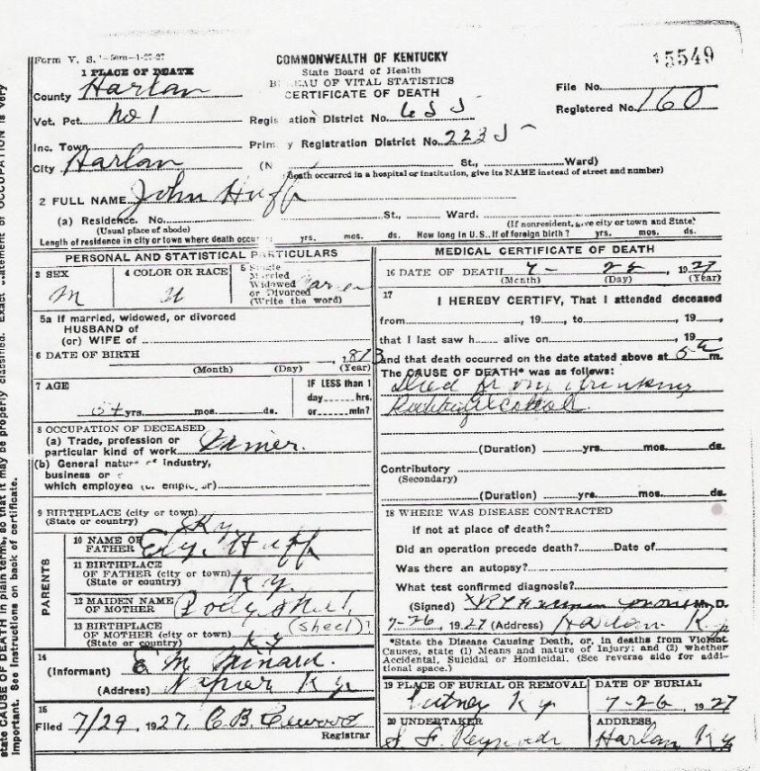 Form V. S. 1-50m-1-27-27
COMMONWEALTH OF KENTUCKY
State Board of Health
BUREAU OF VITAL STATISTICS
CERTIFICATE OF DEATH
15549
File No.
Registered No. 160
1 PLACE OF DEATH
County Harlan
Vot. Pct. No 1
Registration District No. 655
Inc. Town
Primary Registration District No. 2235
City Harlan
(N St., Ward)
death occurred in a hospital or institution, give its NAME instead of street and number)
2 FULL NAME John Huff
(a) Residence. No. St., Ward.
(Usual place of abode) (If nonresident, give city or town and State)
Length of residence in city or town where death occur yrs. mos. ds. How long in U. S., if of foreign birth? yrs. mos. ds.
PERSONAL AND STATISTICAL PARTICULARS
3 SEX
M
4 COLOR OR RACE
5 Single
Married
Widowed
or Divorced
(Write the word)
5a If married, widowed, or divorced
HUSBAND of
(or) WIFE of
6 DATE OF BIRTH 1873
(Month) (Day) (Year)
7 AGE
54 yrs. mos. ds.
IF LESS than 1
day hrs.
or min?
8 OCCUPATION OF DECEASED
(a) Trade, profession or
particular kind of work
(b) General nature of industry,
business or
which employed (or employer)
9 BIRTHPLACE (city or town)
(State or country) Ky
PARENTS
10 NAME OF
FATHER Ely Huff
11 BIRTHPLACE
OF FATHER (city or town)
(State or country) Ky.
12 MAIDEN NAME
OF MOTHER
(sheel)?
13 BIRTHPLACE
OF MOTHER (city or town)
(State or country) Ky
14
(Informant) E M
(Address) Napier Ky
15
Filed 7/29, 1927, C. B.
Registrar
MEDICAL CERTIFICATE OF DEATH
16 DATE OF DEATH 7- , 1927
(Month) (Day) (Year)
17
I HEREBY CERTIFY, That I attended deceased
from , 19 , to , 19
that I last saw h alive on , 19
and that death occurred on the date stated above at 5 a m.
The CAUSE OF DEATH* was as follows:
Died from drinking
Rubbing Alcohol
(Duration) yrs. mos. ds.
Contributory
(Secondary)
(Duration) yrs. mos. ds.
18 WHERE WAS DISEASE CONTRACTED
if not at place of death?
Did an operation precede death? Date of
Was there an autopsy?
What test confirmed diagnosis?
(Signed) M. D.
7-26, 1927 (Address) Harlan Ky
*State the Disease Causing Death, or, in deaths from Violent
Causes, state (1) Means and nature of Injury; and (2) whether
Accidental, Suicidal or Homicidal. (See reverse side for addi-
tional space.)
19 PLACE OF BURIAL OR REMOVAL
Ky
DATE OF BURIAL
7-26, 1927
20 UNDERTAKER
ADDRESS
Harlan Ky
state CAUSE OF DEATH in plain terms, so that it may be properly classified. Exact statement of OCCUPATION is very
important. See instructions on back of certificate.